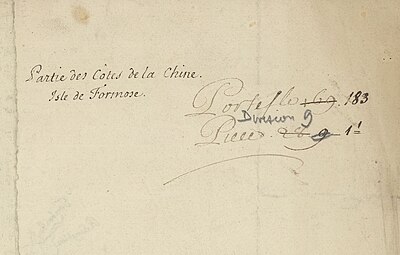 Partie des Côtes de la Chine.
Isle de Formose.
Portef.lle 169. 183
Division 9
Piece 28 9 1